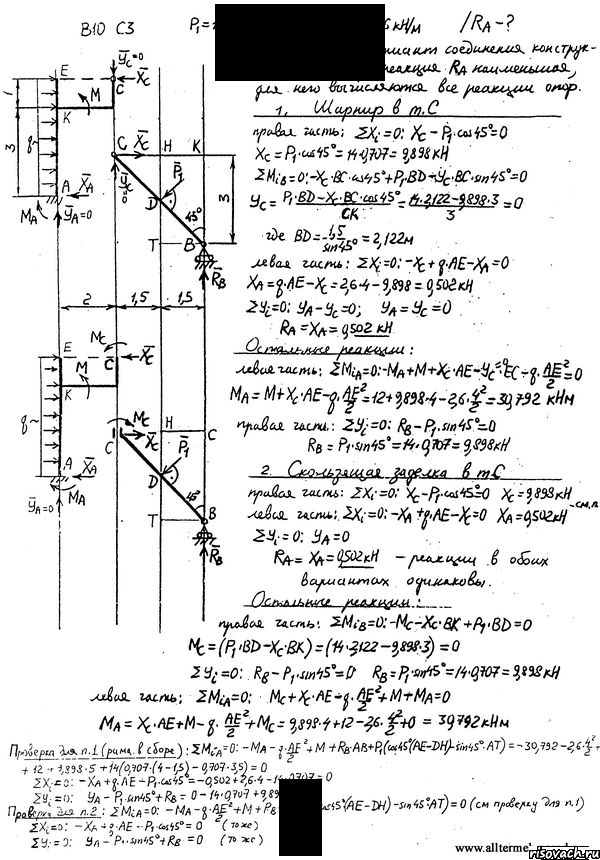 В10 С3 P₁= кН/м /R_A-?
вариант соединения конструк-
реакция R_A наименьшая,
для него вычисляются все реакции опор.
1. Шарнир в т.С
правая часть: ΣXi=0: Xc-P₁·cos45°=0
Xc=P₁·cos45°=14·0,707=9,898кН
ΣM_iB=0:-Xc·BC·cos45°+P₁·BD-Yc·BC·sin45°=0
Yc=P₁·BD-Xc·BC·cos45°/CK=14·2,122-9,898·3/3=0
где BD=1,5/sin45°=2,122м
левая часть: ΣXi=0:-Xc+q·AE-X_A=0
X_A=q·AE-Xc=2,6·4-9,898=0,502кН
ΣYi=0: Y_A-Yc=0; Y_A=Yc=0
R_A=X_A=0,502кН
Остальные реакции:
левая часть: ΣM_iA=0:-M_A+M+Xc·AE-Yc·EC-q·AE²/2=0
M_A=M+Xc·AE-q·AE²/2=12+9,898·4-2,6·4²/2=30,792 кНм
правая часть: ΣYi=0: R_B-P₁·sin45°=0
R_B=P₁·sin45°=14·0,707=9,898кН
2. Скользящая заделка в т.С
правая часть: ΣXi=0: Xc-P₁·cos45°=0 Xc=9,898кН
левая часть: ΣXi=0: -X_A+q·AE-Xc=0 X_A=0,502кН -см.п
ΣYi=0: Y_A=0
R_A=X_A=0,502кН - реакции в обоих
вариантах одинаковы.
Остальные реакции:
правая часть: ΣM_iB=0:-Mc-Xc·BK+P₁·BD=0
Mc=(P₁·BD-Xc·BK)=(14·2,122-9,898·3)=0
ΣYi=0: R_B-P₁·sin45°=0 R_B=P₁·sin45°=14·0,707=9,898кН
левая часть: ΣM_iA=0: Mc+Xc·AE-q·AE²/2+M+M_A=0
M_A=Xc·AE+M-q·AE²/2+Mc=9,898·4+12-2,6·4²/2+0=30,792кНм
Проверка для п.1 (рама в сборе): ΣM_iA=0: -M_A-q·AE²/2+M+R_B·AB+P₁(cos45°(AE-DH)-sin45°·AT)=-30,792-2,6·4²/2+
+12+9,898·5+14(0,707·(4-1,5)-0,707·3,5)=0
ΣXi=0: -X_A+q·AE-P₁·cos45°=-0,502+2,6·4-14·0,707=0
ΣYi=0: Y_A-P₁·sin45°+R_B=0-14·0,707+9,89
Проверка для п.2: ΣM_iA=0: -M_A-q·AE²/2+M+ os45°(AE-DH)-sin45°AT)=0 (см проверку для п.1)
ΣXi=0: -X_A+q·AE-P₁·cos45°=0 (то же)
ΣYi=0: Y_A-P₁·sin45°+R_B=0 (то же)
www.allterme
risovach.ru